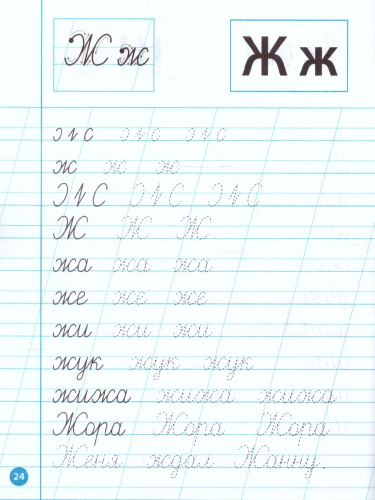 Ж ж Ж ж
ж ж ж
Ж Ж Ж
жа жа жа
же же же
жи жи жи
жук жук жук
жижа жижа жижа
Жора Жора Жора
Женя ждал Жанну.
24